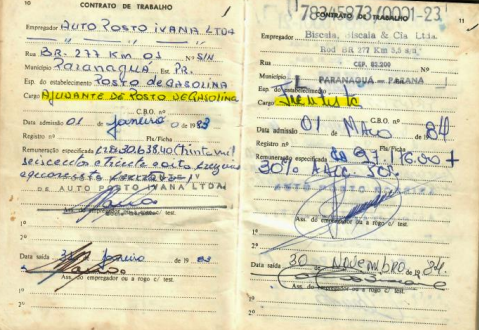 10
CONTRATO DE TRABALHO
Empregador AUTO POSTO IVANA LTDA
Rua BR. 277 Km 05 Nº S/N
Município Paranaguá Est. PR.
Esp. do estabelecimento POSTO DE GASOLINA
Cargo AJUDANTE DE POSTO DE GASOLINA
C.B.O. nº
Data admissão 01 de Janeiro de 1983
Registro nº Fls/Ficha
Remuneração especificada 30.638,40 (trinta mil
seiscentos e trinta e oito cruzeiros
DE AUTO POSTO IVANA LTDA
Ass. do empregador ou a rogo c/ test.
1º
2º
Data saída de Janeiro de 19 83
Ass. do empregador ou a rogo c/ test.
1º
2º
11
78345873/0001-23
CONTRATO DE TRABALHO
Empregador Biscaia, Biscaia & Cia Ltda.
Rod BR 277 Km 5,5 s/nº
Rua CEP. 83.200 Nº
Município PARANAGUÁ - PARANÁ
Esp. do estabelecimento
Cargo
C.B.O. nº
Data admissão 01 de MAIO de 1984
Registro nº Fls/Ficha
Remuneração especificada 97.176,00 +
30%
AUTO POSTO
Ass. do empregador ou a rogo c/ test.
1º
2º
Data saída 30 de NOVEMBRO de 1984.
Ass. do empregador ou a rogo c/ test.
1º
2º